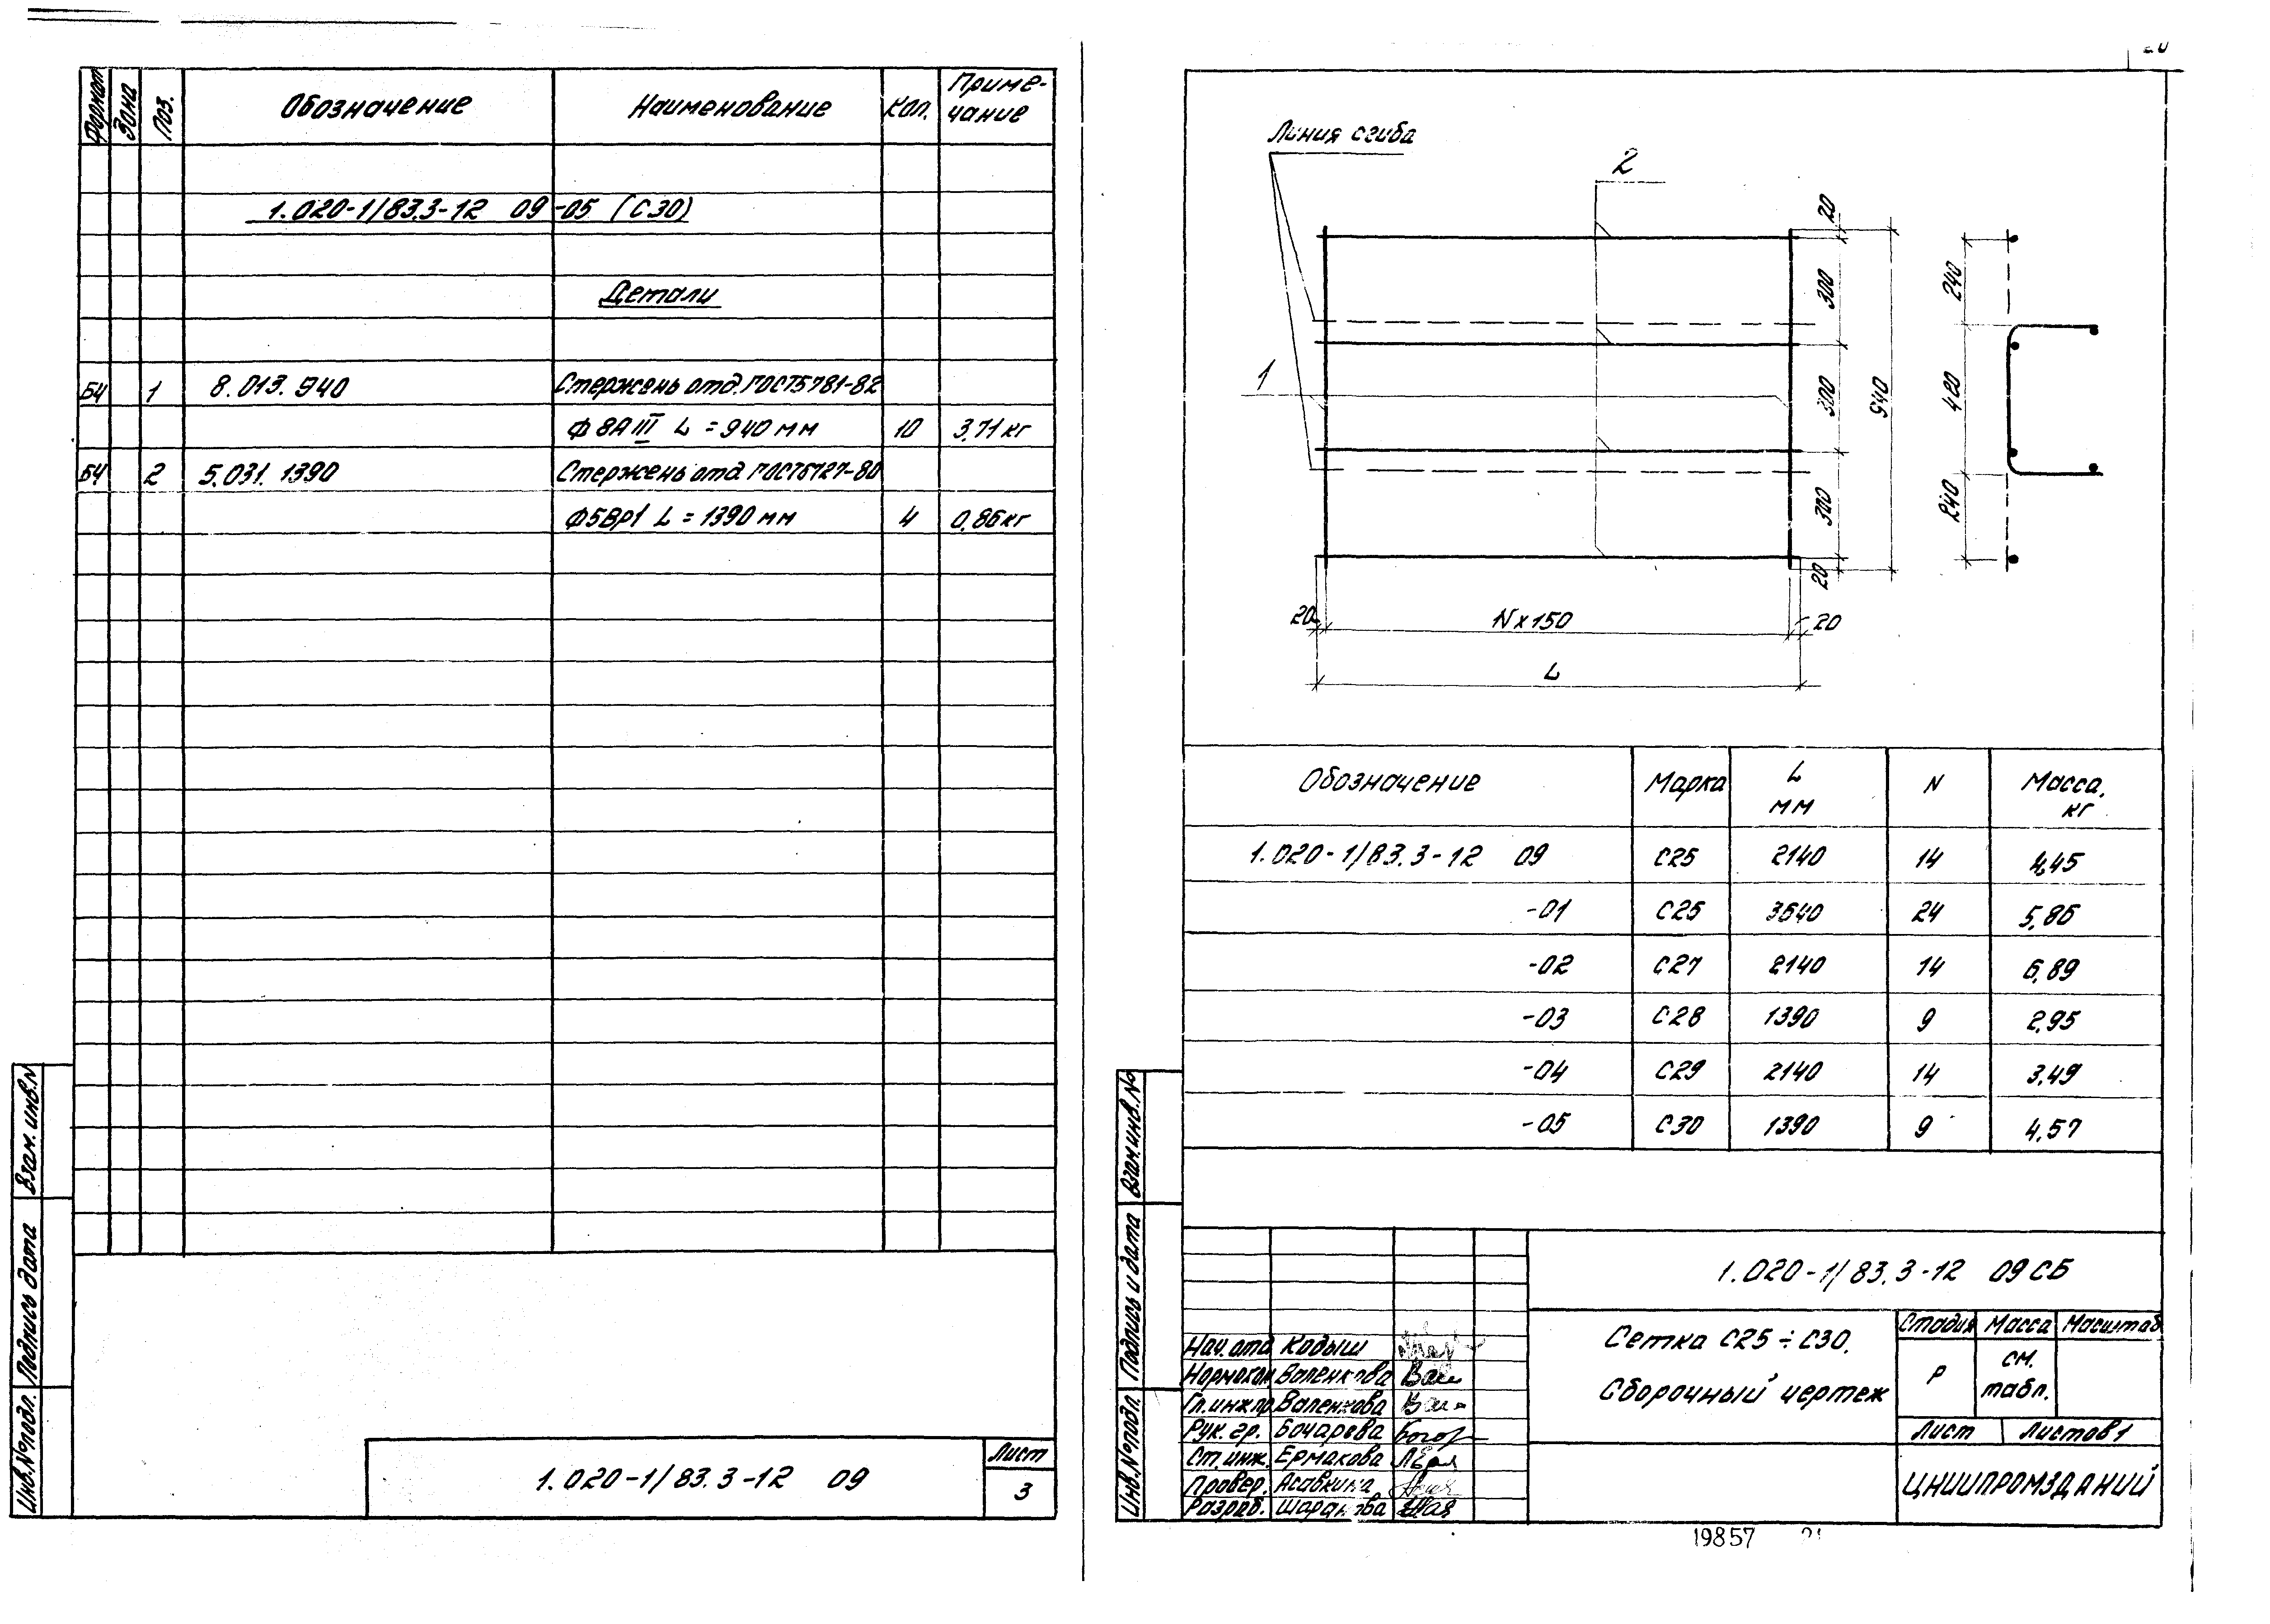 Формат Зона Поз. Обозначение Наименование Кол. Приме-
чание
1.020-1/83.3-12 09 -05 (С30)
Детали
БЧ 1 8.013.940 Стержень отд. ГОСТ5781-82
Ф 8АIII L = 940 мм 10 3,71 кг
БЧ 2 5.031.1390 Стержень отд. ГОСТ6727-80
Ф5ВР1 L = 1390 мм 4 0,86 кг
Взам. инв. №
Подпись дата
Инв. № подл.
1.020-1/83.3-12 09
Лист
3
Линия сгиба
2
1
20
300
300
300
20
940
240
420
240
20
N x 150
20
L
Обозначение Марка L
мм N Масса,
кг
1.020-1/83.3-12 09 С25 2140 14 4,45
-01 С26 3640 24 5,86
-02 С27 2140 14 6,89
-03 С28 1390 9 2,95
-04 С29 2140 14 3,49
-05 С30 1390 9 4,57
Взам. инв. №
Подпись и дата
Инв. № подл.
1.020-1/83.3-12 09 СБ
Нач. отд. Кодыш
Нормокон Валенкова
Гл. инж. пр. Валенкова
Рук. гр. Бочарова
Ст. инж. Ермакова
Провер. Асавкина
Разраб. Шаранова
Сетка С25 ÷ С30.
Сборочный чертеж
Стадия Масса Масштаб
Р см.
табл.
Лист Листов 1
ЦНИИПРОМЗДАНИЙ
19857